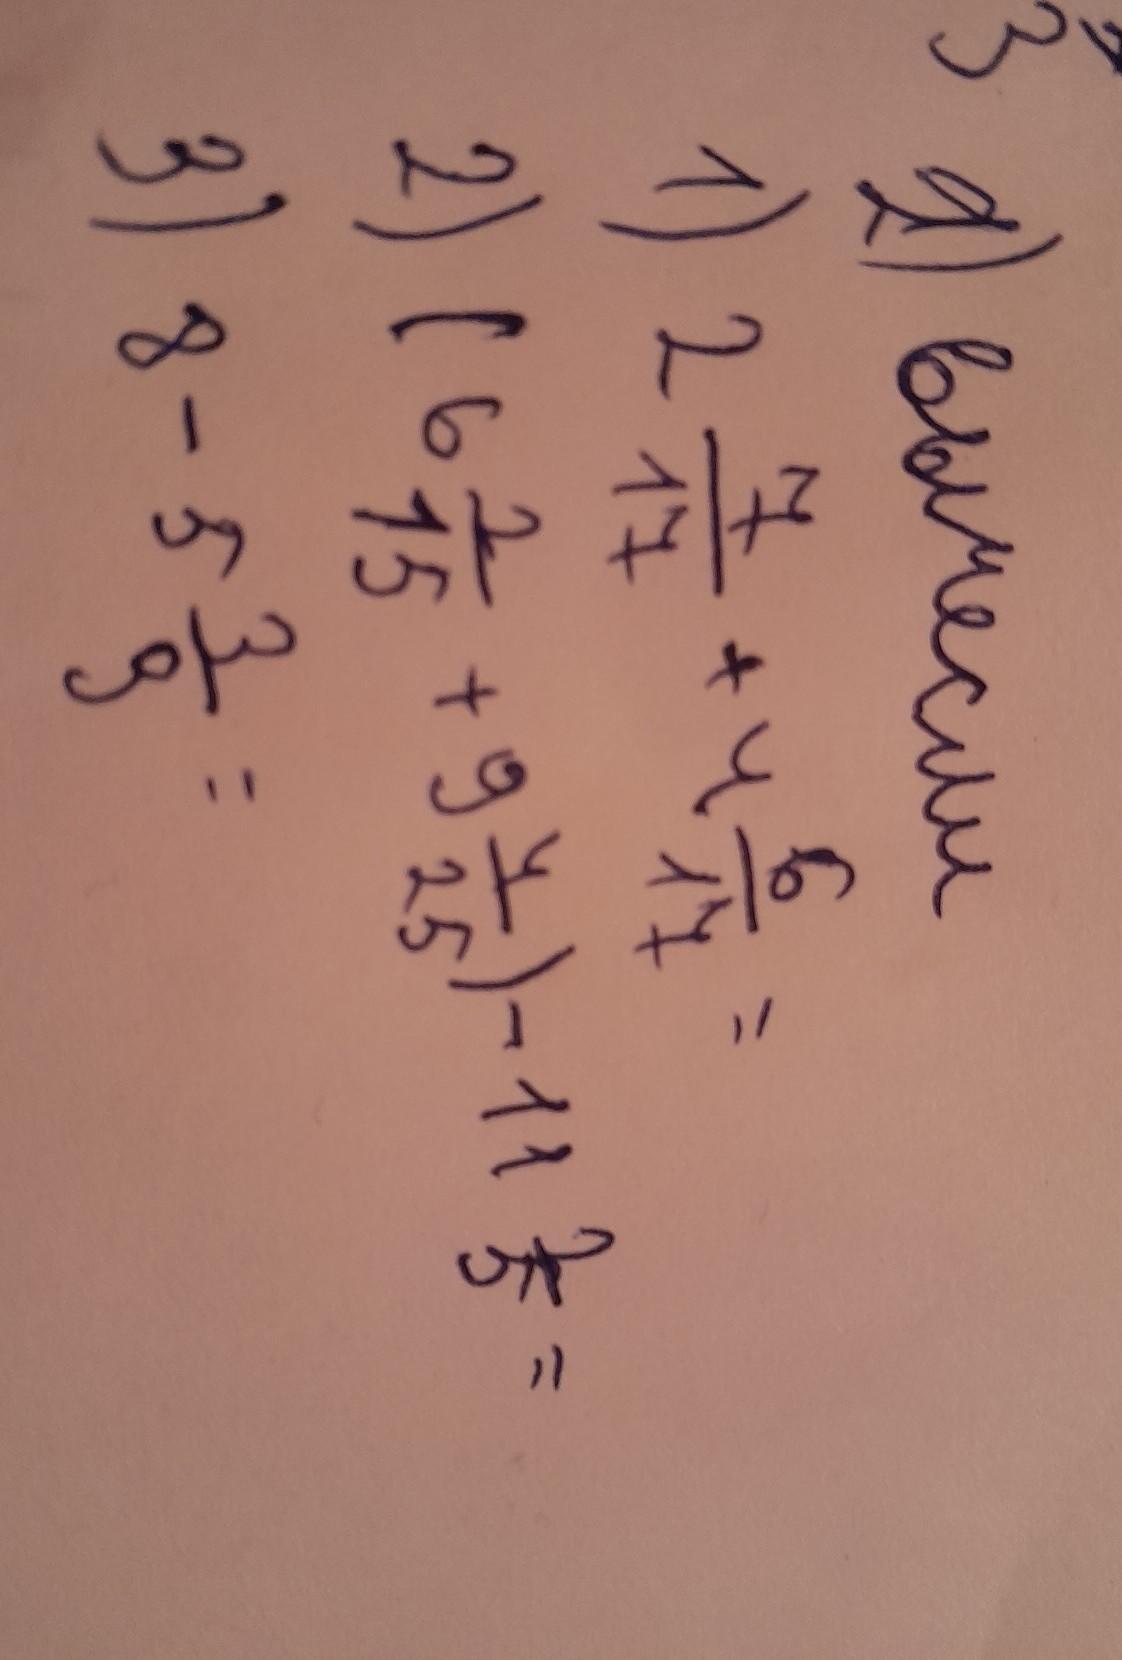 2) вычесли
1) 2 7/17 + 4 6/17 =
2) (6 2/15 + 9 4/25) - 11 2/5 =
3) 8 - 5 3/9 =